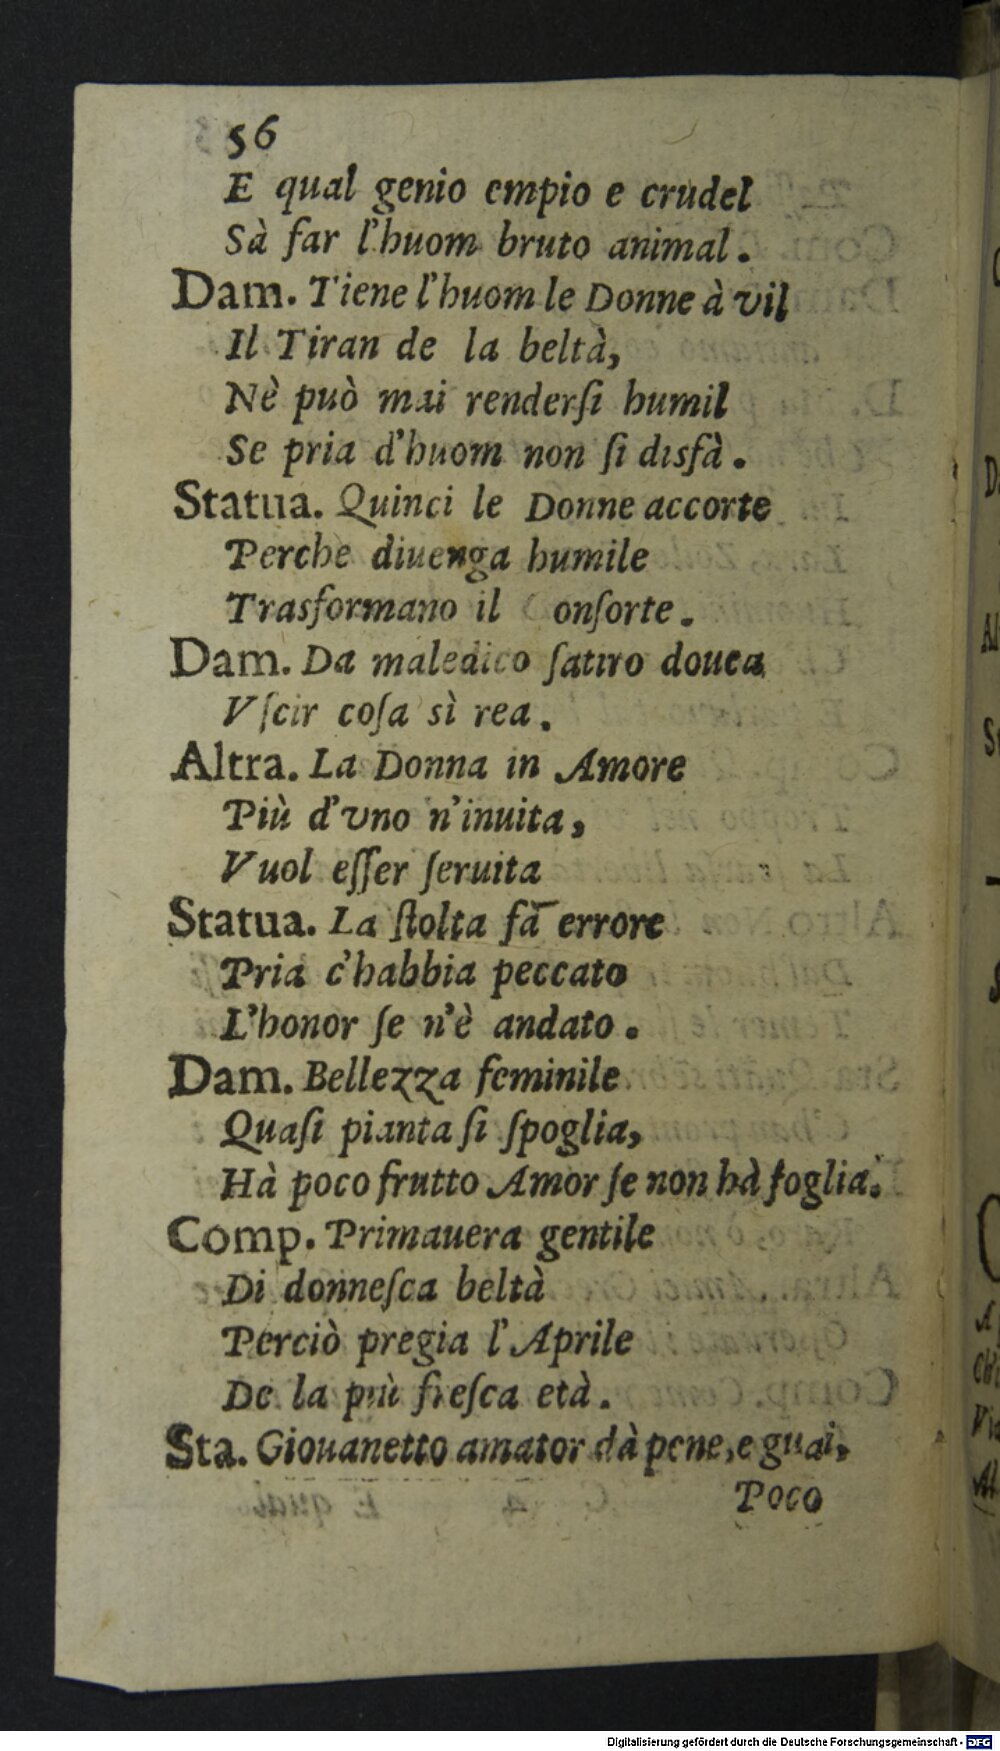 56
E qual genio empio e crudel
Sà far l'huom bruto animal.
Dam. Tiene l'huom le Donne à vil
Il Tiran de la beltà,
Nè può mai renderſi humil
Se pria d'huom non ſi disfà.
Statua. Quinci le Donne accorte
Perche diuenga humile
Trasformano il Conſorte.
Dam. Da maledico ſatiro douea
Vſcir coſa sì rea.
Altra. La Donna in Amore
Più d'vno n'inuita,
Vuol eſſer ſeruita
Statua. La ſtolta fà errore
Pria c'habbia peccato
L'honor ſe n'è andato.
Dam. Bellezza feminile
Quaſi pianta ſi ſpoglia,
Hà poco frutto Amor ſe non hà foglia.
Comp. Primauera gentile
Di donneſca beltà
Perciò pregia l'Aprile
De la più freſca età.
Sta. Giouanetto amator dà pene, e guai,
Poco
Digitalisierung gefördert durch die Deutsche Forschungsgemeinschaft - DFG